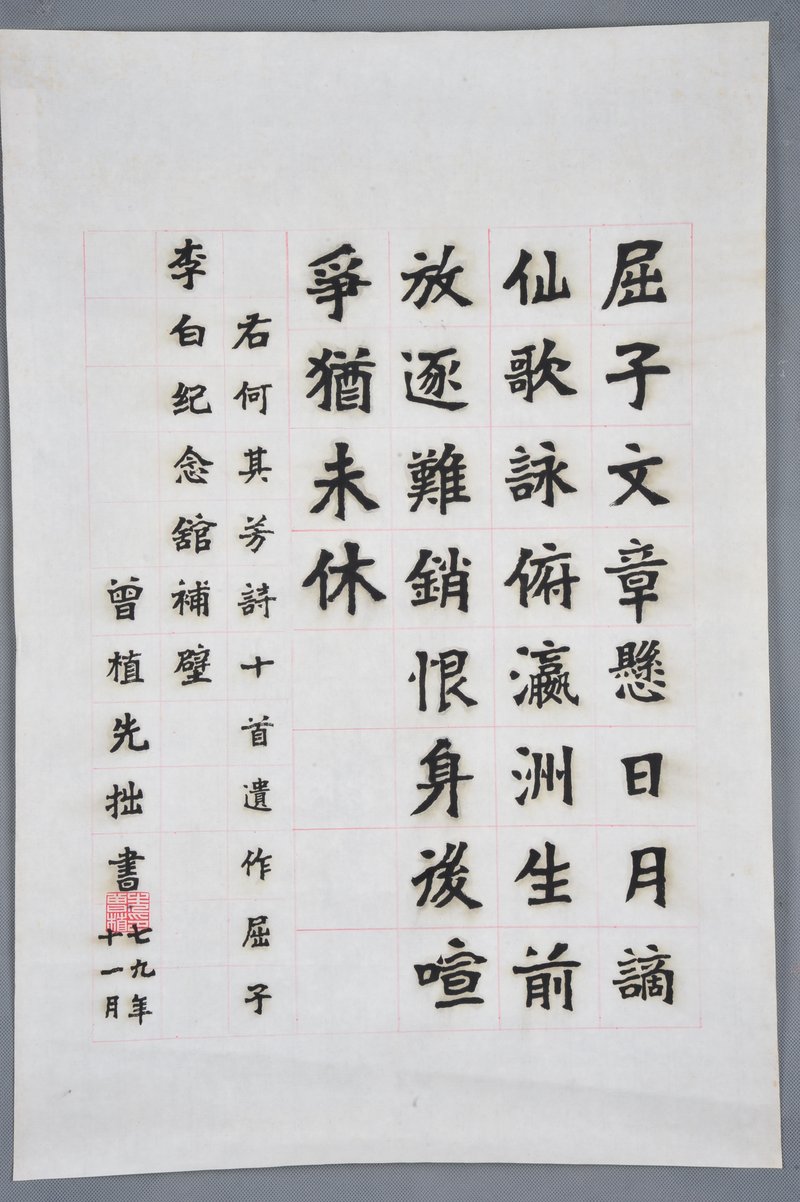 屈子文章懸日月謫
仙歌詠俯瀛洲生前
放逐難銷恨身後喧
爭猶未休
右何其芳詩十首遺作屈子
李白纪念舘補壁
曾植先拙書
七九年
十一月